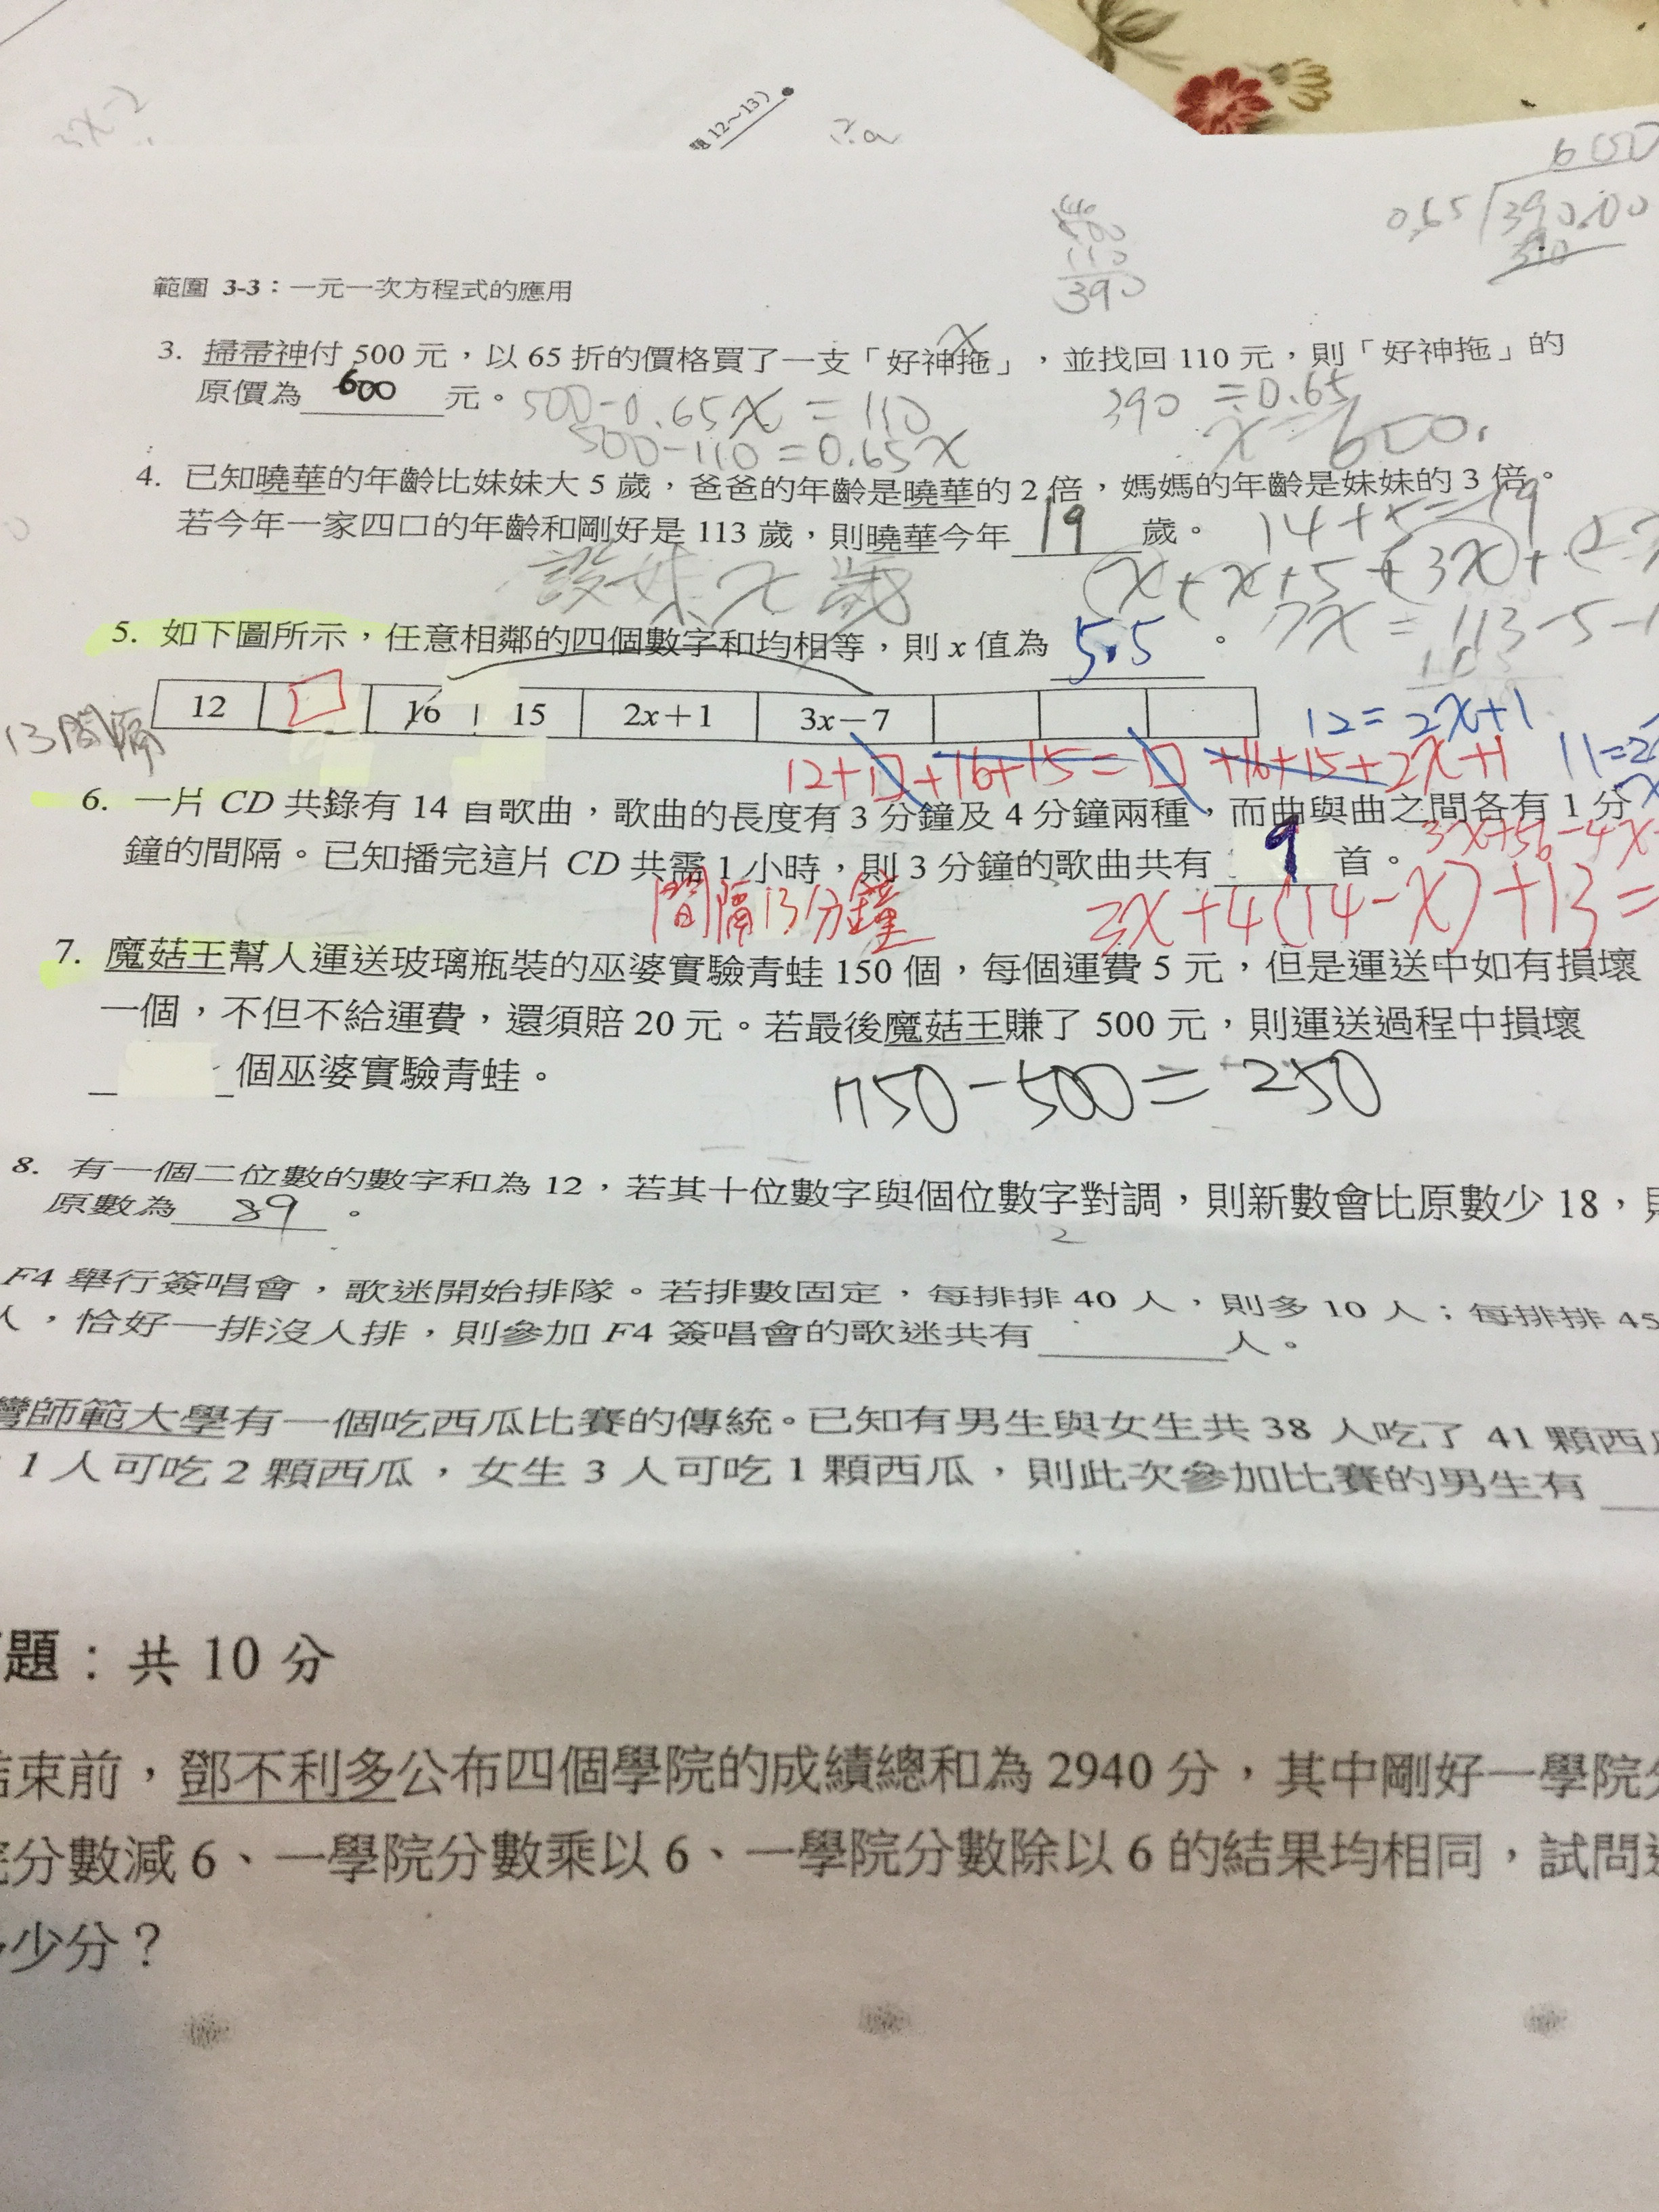 題 12～13)
600
0.65 390.00
390
110
390
範圍 3-3：一元一次方程式的應用
x
3. 掃帚神付 500 元，以 65 折的價格買了一支「好神拖」，並找回 110 元，則「好神拖」的
原價為 600 元。
500-0.65x = 110
500-110 = 0.65x
390 = 0.65
x = 600
4. 已知曉華的年齡比妹妹大 5 歲，爸爸的年齡是曉華的 2 倍，媽媽的年齡是妹妹的 3 倍。
若今年一家四口的年齡和剛好是 113 歲，則曉華今年 19 歲。
14+5=19
設妹x歲
(x+x+5+(3x)+(2
7x = 113-5-1
5. 如下圖所示，任意相鄰的四個數字和均相等，則 x 值為 5.5 。
12 □ 16 15 2x+1 3x−7
13間隔
12=2x+1
11=2
12+□+16+15=□+16+15+2x+1
6. 一片 CD 共錄有 14 首歌曲，歌曲的長度有 3 分鐘及 4 分鐘兩種，而曲與曲之間各有 1 分
鐘的間隔。已知播完這片 CD 共需 1 小時，則 3 分鐘的歌曲共有 9 首。
3x+56-4x
間隔13分鐘
3x+4(14-x)+13=
7. 魔菇王幫人運送玻璃瓶裝的巫婆實驗青蛙 150 個，每個運費 5 元，但是運送中如有損壞
一個，不但不給運費，還須賠 20 元。若最後魔菇王賺了 500 元，則運送過程中損壞
個巫婆實驗青蛙。
750-500=250
8. 有一個二位數的數字和為 12，若其十位數字與個位數字對調，則新數會比原數少 18，則
原數為 39 。
2
F4 舉行簽唱會，歌迷開始排隊。若排數固定，每排排 40 人，則多 10 人；每排排 45
人，恰好一排沒人排，則參加 F4 簽唱會的歌迷共有 人。
灣師範大學有一個吃西瓜比賽的傳統。已知有男生與女生共 38 人吃了 41 顆西瓜
1 人可吃 2 顆西瓜，女生 3 人可吃 1 顆西瓜，則此次參加比賽的男生有
題：共 10 分
結束前，鄧不利多公布四個學院的成績總和為 2940 分，其中剛好一學院分
院分數減 6、一學院分數乘以 6、一學院分數除以 6 的結果均相同，試問這
多少分？